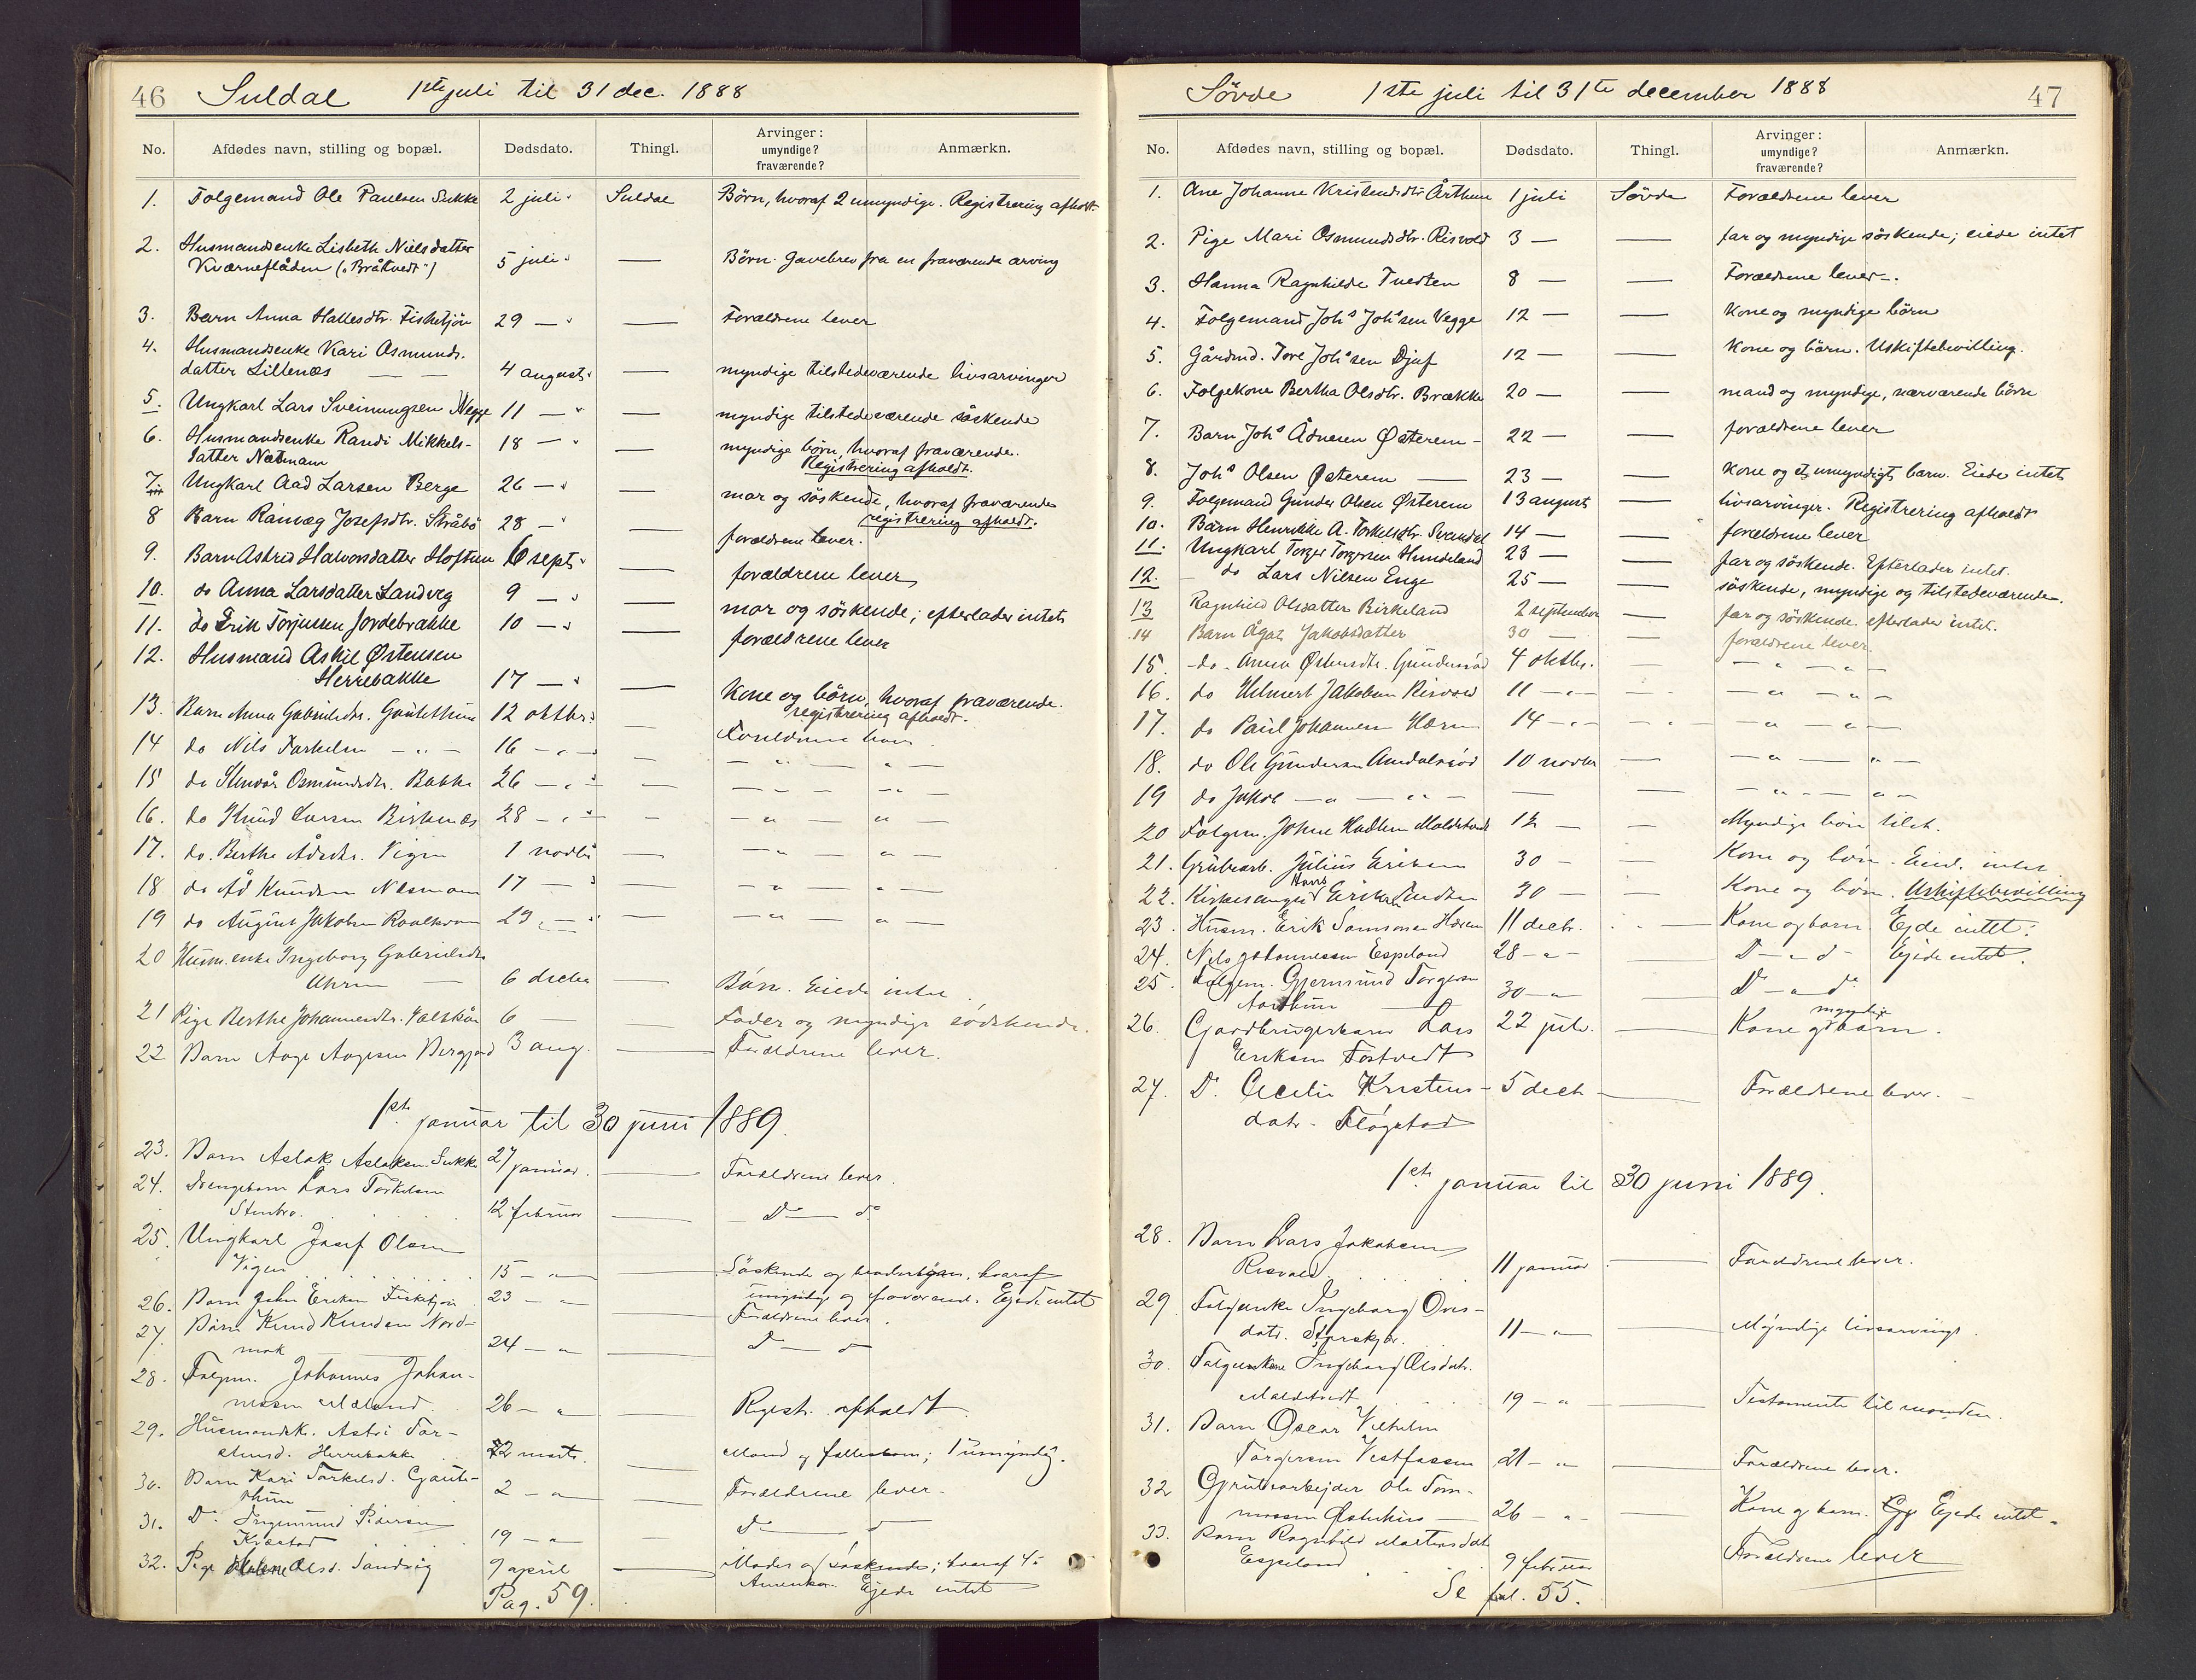 46 Suldal 1ste juli til 31 dec. 1888
No. Afdødes navn, stilling og bopæl. Dødsdato. Thingl. Arvinger: umyndige? fraværende? Anmærkn.
1. Folgemand Ole Paulsen Sukke 2 juli Suldal Børn, hvoraf 2 umyndige. Registrering afholdt.
2. Husmandsenke Lisbeth Nielsdatter
Kværneflåden ("Bråtvedt") 5 juli — Børn. Gavebrev fra en fraværende arving
3. Barn Anna Hallesdtr. Fisketjøn 29 — — Forældrene lever
4. Husmandsenke Kari Osmunds-
datter Lillenæs — — 4 august — myndige tilstedeværende livsarvinger
5. Ungkarl Lars Sveinungsen Vegge 11 — — myndige tilstedeværende söskende
6. Husmandsenke Randi Mikkels- 18 — — myndige børn, hvoraf fraværende.
datter Næsmann Registrering afholdt.
7. Ungkarl Aad Larsen Berge 26 — — mor og söskende, hvoraf fraværende
registrering afholdt.
8 Barn Ranveg Josefsdtr. Stråbø 28 — — forældrene lever.
9. Barn Astrid Halvorsdatter Hoftun 6 sept. — forældrene lever
10. do Anna Larsdatter Landveg 9 — — mor og söskende; efterlader intet
11. do Erik Torjussen Jordebrække 10 — — forældrene lever
12. Husmand Askil Østensen
Herrebakke 17 — — Kone og börn, hvoraf fraværende.
registrering afholdt.
13. Barn Anna Gabrielsdtr. Gautethun 12 oktbr. Forældrene lever
14 do Nils Torkelsen — " — 16 — " — — — " — " —
15 do Osmundsdtr. Bakke 26 — " — — — — — " —
16. do Knud Larsen Birkenæs 28 — " — — — " — " —
17. do. Berthe Ådsdtr. Vigen 1 novbr — — " — " —
18 do Åd Knudsen Næsmann 17 — — — " — " —
19 do August Jakobsen Roalkvam 29 — — — " — " —
20 Husm.enke Ingeborg Gabrielsdtr
— 6 decbr — Børn. Eiede intet.
21 Pige Berthe Johannesdtr. 6 — — Fader og myndige sødskende.
22 Barn Aage Aagesen 3 aug. — Forældrene lever.
1ste januar til 30 juni 1889.
23. Barn Aslak Aslaksen Sukke 27 januar. — Forældrene lever.
24. Drengebarn Lars Torkelsen
Stenbro. 12 februar — Do — do
25. Ungkarl Josef Olsen
Vigen 15 — " — Söskende og hvoraf
umyndige og fraværend. Ejede intet
26. Barn John Eriksen Fisketjøn 23 — " — Forældrene lever.
27. Barn Knud Knudsen Nord-
mork 24 — " — Do — do
28. Folgem. Johannes Johan-
nessen Mæland 26 — " — Registr. afholdt.
29. Husmandsk. Astri Tor-
Herrebakke 22 marts. — Mand og fællesbarn; 1 umyndig.
30. Barn Kari Torkelsd. Gaute-
thun 2 — " — Forældrene lever.
31. Do. Ingemund Pedersen
19 — " — Do — do
32. Pige Malene Olsd. Sandvig 9 april — Moder og söskende; hvoraf 4 i
Amerika. Ejede intet
Pag. 59.
Søvde 1ste juli til 31te december 1888 47
No. Afdødes navn, stilling og bopæl. Dødsdato. Thingl. Arvinger: umyndige? fraværende? Anmærkn.
1. Ane Johanne Kristensdtr Årthun 1 juli Søvde Forældrene lever
2. Pige Mari Osmundsdtr. Risvold 3 — — far og myndige söskende; eiede intet
3. Hanna Ragnhilde Tvedten 8 — — Forældrene lever.
4. Folgemand Johs Johssen Vegge 12 — — Kone og myndige börn
5. Gårdmd. Tore Johssen Djuf 12 — — Kone og börn. Uskiftebevilling.
6. Folgekone Bertha Olsdtr. Brække 20 — — mand og myndige, nærværende börn
7. Barn Johs Ådnesen Østerem 22 — — forældrene lever
8. Johs Olsen Østerem — 23 — — Kone og et umyndigt barn. Eiede intet
9. Folgemand Gunder Olsen Østerem 13 august — livsarvinger. Registrering afholdt
10. Barn Henrikke A. Torkelsdtr. Svandal 14 — — forældrene lever
11. Ungkarl Torger Torgersen Hundeland 23 — — far og söskende. Efterlader intet.
12. — do Lars Nilsen Enge 25 — — söskende, myndige og tilstedeværende.
13 Ragnhild Olsdatter Birkeland 2 september — far og söskende. efterlader intet.
14 Barn Ågat Jakobsdatter 30 — — forældrene lever
15 do. Anna Østensdtr. Gundersød 4 oktbr. — — " — " —
16. do Helmert Jakobsen Risvold 11 — " — — — " — " —
17. do Paul Johannesen 14 — " — — " — — " — " —
18. do Ole Gundersen 10 novbr — — " — " —
19 do Jakob — " — " — — — — " — " —
20 Folgem. Johne Maldetvedt 12 — — Myndige børn tilst.
21. Grubearb. Julius Eriksen 30 — — Kone og børn. Eied. intet
22. Kirkesanger Hans Eriksen Tvedten 30 — — Kone og børn. Uskiftebevilling
23. Husm. Erik Samsonsen 11 decbr. — Kone og barn. Ejede intet.
24. Nils Johannessen Espeland 28 — " — — Do — " — do — Ejede intet.
25. Folgem. Gjermund Torgersen
Aarthun — 30 — " — Do — " — do
26. Gaardbrugerbarn Lars 22 juli. — Kone og myndige børn.
Eriksen Tostvedt
27. Do. Cecilie Kristens- 5 decbr — Forældrene lever.
datr. Fløgstad
1ste januar til 30 juni 1889.
28. Barn Lars Jakobsen
Risvold. 11 januar — Forældrene lever.
29. Folgeenke Ingeborg
datr. 11 — " — Myndige livsarvinge.
30. Folgekone Ingeborg Olsdatr.
Maldetvedt 19 — " — Testamente til manden.
31. Barn Oscar Vilhelm
Torgersen 21 — " — Forældrene lever.
32 Grubearbejder Ole Tom-
massen — 26 — " — Kone og barn. Ejede intet.
33. Barn Ragnhild Mortensdat
Espeland 9 februar Forældrene lever
Se fol. 55.